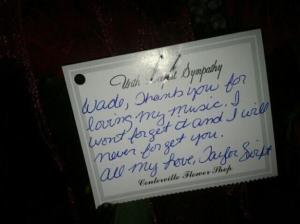 With Deepest Sympathy
Wade, Thank you for
loving my music. I
wont forget it and I will
never forget you.
All my Love, Taylor Swift
Centerville Flower Shop